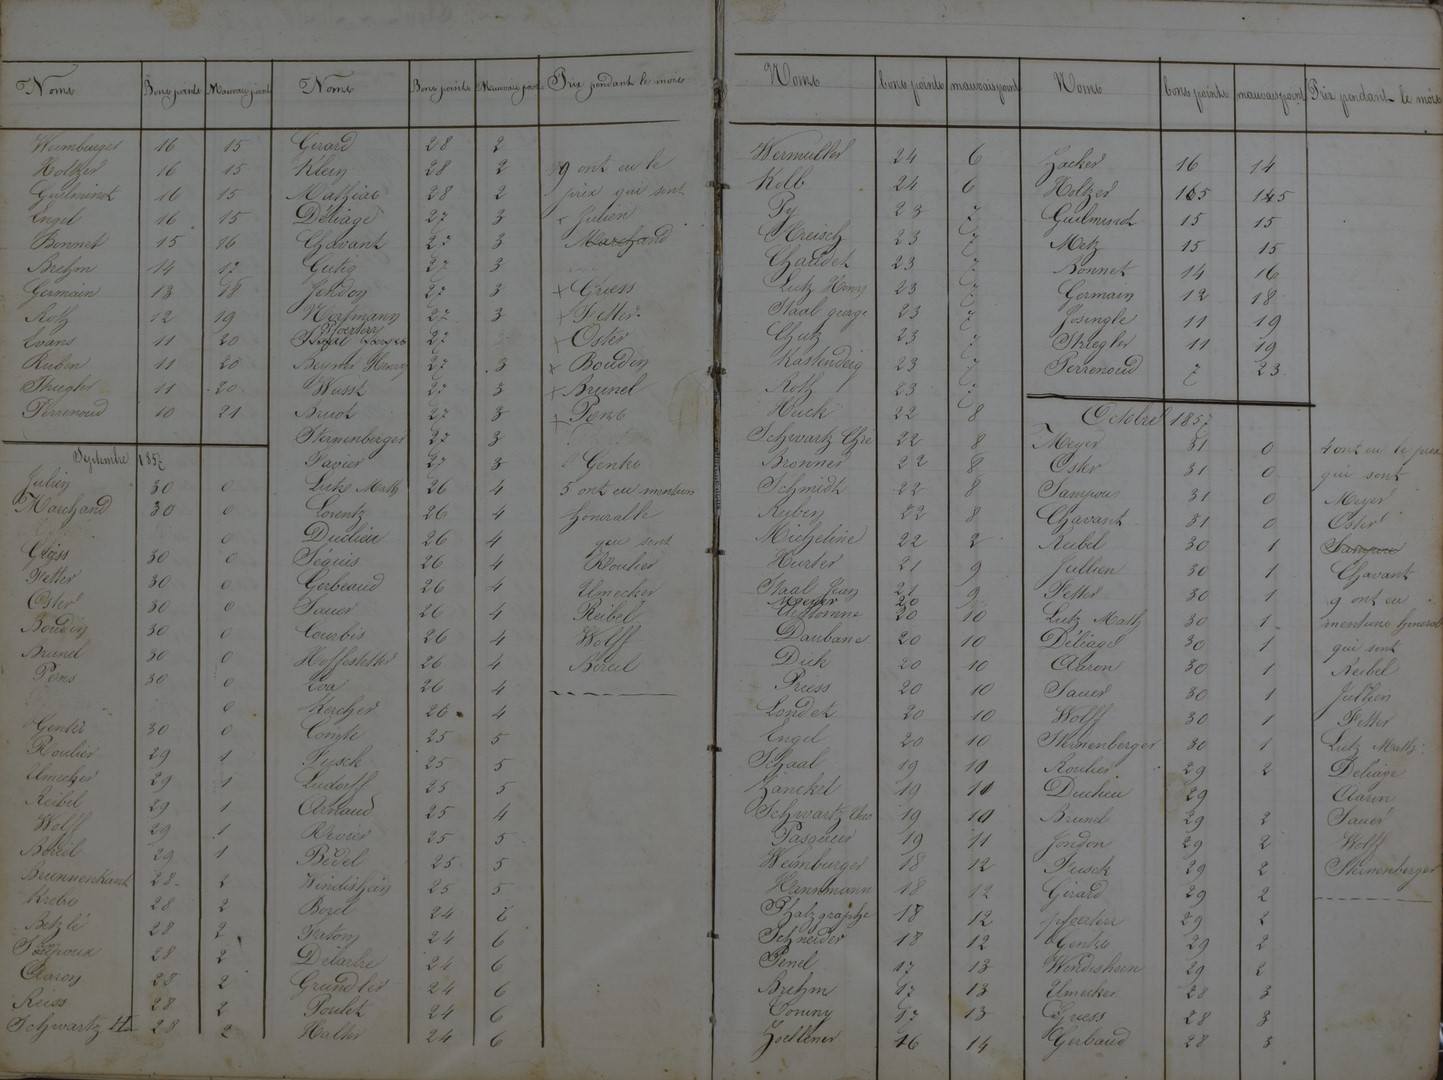 Noms Bons points Mauvais point Noms Bons points Mauvais point Prix pendant le mois
Weimburger 16 15
Holtzer 16 15
Guilminot 16 15
Engel 16 15
Bonnet 15 16
Brehm 14 17
Germain 13 18
Rotz 12 19
Evans 11 20
Ruben 11 20
Striegler 11 20
Perrenoud 10 21
Septembre 1857
Julien 30 0
Marchand 30 0
0
Griess 30 0
Fetter 30 0
Oster 30 0
Boudin 30 0
Brunel 30 0
Pems 30 0
0
Gentes 30 0
Roulier 29 1
Umecker 29 1
Reibel 29 1
Wolff 29 1
Boreil 29 1
Brunnenkant 28 2
Krebs 28 2
Betzlé 28 2
28 2
Aaron 28 2
Reiss 28 2
Schwartz H 28 2
Girard 28 2
Klein 28 2
Mathias 28 2
Déliage 27 3
Chavant 27 3
Gutig 27 3
Jondon 27 3
Hortmann 27 3
Pfoertner 27
Beyner Henry 27 3
Wusst 27 3
Bruot 27 3
Sternenberger 27 3
Pavier 27 3
Lutz Math 26 4
Lorentz 26 4
Duclieu 26 4
Séguis 26 4
Gerbeaud 26 4
Sauer 26 4
Courbis 26 4
Hoffestetter 26 4
Eva 26 4
Kercher 26 4
Comte 25 5
Fusch 25 5
Ludorff 25 5
Arnaud 25 4
Rivoier 25 5
Bedel 25 5
Windisheim 25 5
Borel 24 6
Patom 24 6
Délarbre 24 6
Grundler 24 6
Poulet 24 6
Halter 24 6
9 ont eu le
prix qui sont
+ Julien
Marchand
+ Griess
+ Fetter
+ Oster
+ Boudin
+ Brunel
+ Pems
Gentes
5 ont eu mention
honorable
qui sont
Roulier
Umecker
Reibel
Wolff
Boreil
Noms bons points mauvais point Noms bons points mauvais point Prix pendant le mois
Wermulter 24 6
Kolb 24 6
Py 23 7
Kreisch 23 7
Chaudet 23 7
Lutz Henry 23 7
Staal george 23 7
Chutz 23 7
Kastendeig 23 7
Rotz 23 7
Huck 22 8
Schwartz Chre 22 8
Bronner 22 8
Schmidt 22 8
Ruben 22 8
Micheline 22 2
Hurter 21 9
Staal Jean 21 9
Meyer 20
Chalonne 20 10
Daubane 20 10
Dick 20 10
Priess 20 10
Londet 20 10
Engel 20 10
Schaal 19 11
Hanckel 19 11
Schwartz Theo 19 11
Pasqueier 19 11
Weimburger 18 12
Hannmann 18 12
Phalzgraphe 18 12
Schneider 18 12
Penel 17 13
Brehm 17 13
Coniny 17 13
Zoellener 16 14
Hacker 16 14
Holtzer 15 15
Guilminot 15 15
Metz 15 15
Bonnet 14 16
Germain 12 18
Josingle 11 19
Striegler 11 19
Perrenoud 7 23
Octobre 1857
Meyer 31 0
Oster 31 0
Sampoux 31 0
Chavant 31 0
Reibel 30 1
Jullien 30 1
Fetter 30 1
Lutz Math 30 1
Déliage 30 1
Aaron 30 1
Sauer 30 1
Wolff 30 1
Sternenberger 30 1
Roulier 29 2
Duclieu 29
Brunel 29 2
Jondon 29 2
Fusch 29 2
Girard 29 2
Pfoertner 29 2
Gentes 29 2
Windisheim 29 2
Umecker 28 3
Griess 28 3
Gerbaud 28 3
4 ont eu le prix
qui sont
Meyer
Oster
Sampoux
Chavant
9 ont eu
mentions honorab
qui sont
Reibel
Jullien
Fetter
Lutz Math
Déliage
Aaron
Sauer
Wolff
Sternenberger